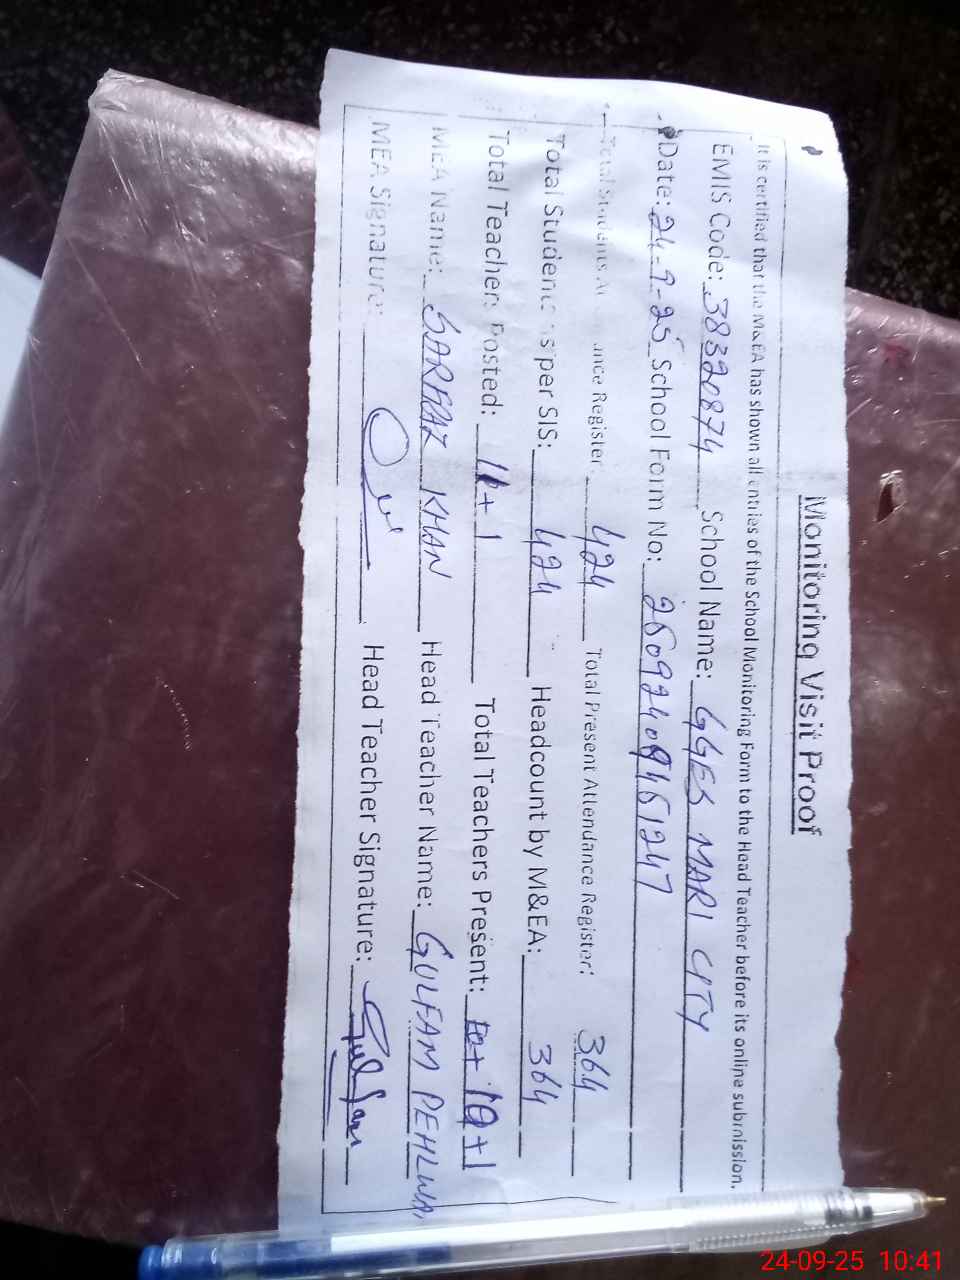 Monitoring Visit Proof
It is certified that the M&EA has shown all entries of the School Monitoring Form to the Head Teacher before its online submission.
EMIS Code: 38320874 School Name: GGES MARI CITY
Date: 24-9-25 School Form No:
Total Students Register 424 Total Present Attendance Register: 364
Total Student per SIS: 424 Headcount by M&EA: 364
Total Teachers Posted: 11+1 Total Teachers Present: 10+1
MEA Name: SARFRAZ KHAN Head Teacher Name: GULFAM PEHLWA
MEA Signature: Head Teacher Signature: Gulfam
24-09-25 10:41